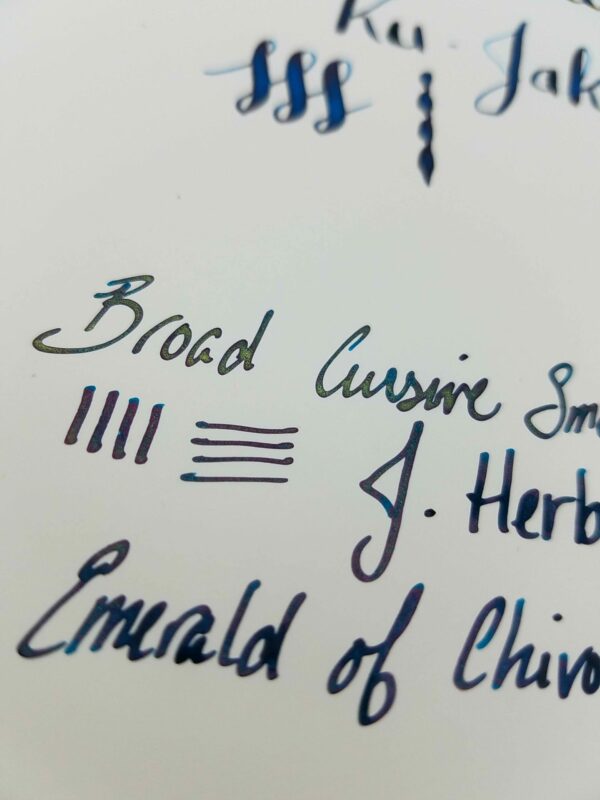 Ku - Jak
Broad Cursive Sm
J. Herb
Emerald of Chivo